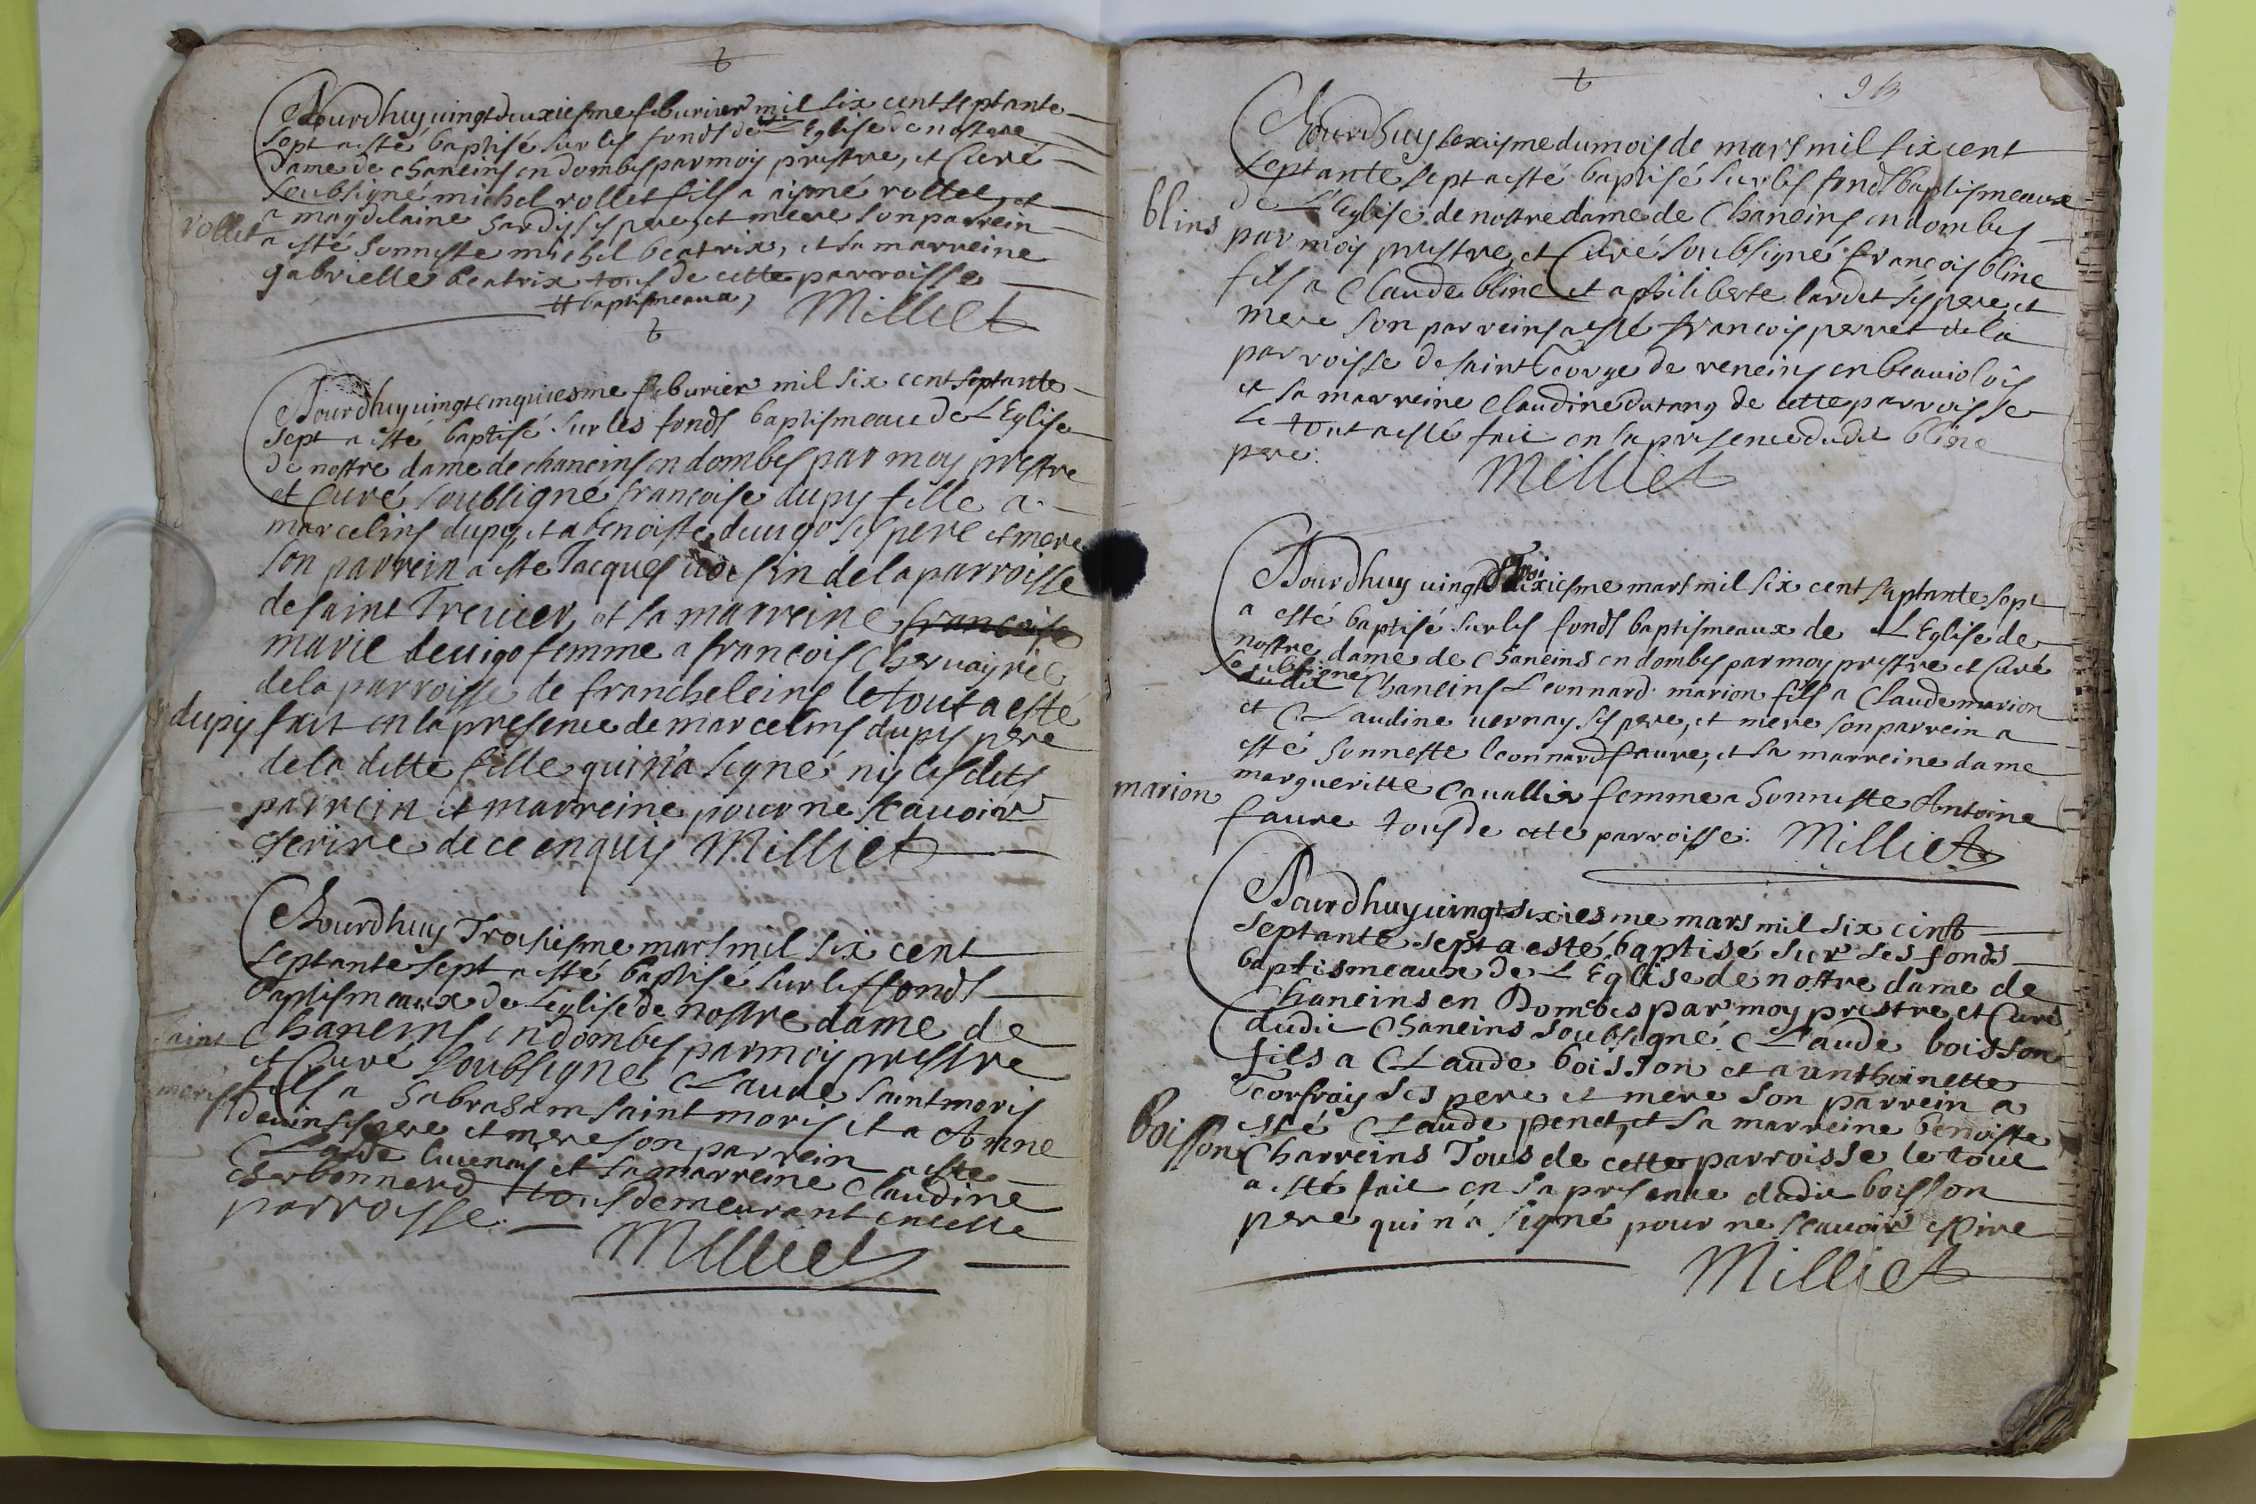 Aourdhuy uingt deuxiesme feburier mil six cent septante
sept a esté baptisé sur les fonds de L'Eglise de nostre
dame de chaneins en dombes par moy prestre, et Curé
soubsigné michel rollet fils a aismé rollet, et
rollet
a magdelaine sardis ses pere, et mere son parrein
a esté honneste michel beatrix, et sa marreine
gabrielle beatrix tous de cette parroisse
# baptismeaux, Milliet
Aourdhuy uingt cinquiesme feburier mil six cent septante
sept a esté baptisé sur les fonds baptismeaux de L'Eglise
de nostre dame de chaneins en dombes par moy prestre
et Curé soubsigné françoise dupy fille a
marcelins dupy, et a benoiste deuigo ses pere et mere
son parrein a esté Jacques de la parroisse
de saint Triuier, et sa marreine françoise
marie deuigo femme a françois
de la parroisse de francheleins le tout a esté
dupy
fait en la presence de marcelins dupy pere
de la ditte fille qui n'a signé ny les dits
parrein et marreine pour ne scauoir
escrire de ce enquis Milliet
Aourdhuy Troisiesme mars mil six cent
septante sept a esté baptisé sur les fonds
baptismeaux de L'eglise de nostre dame de
saint
Chaneins en dombes par moy prestre
et Curé soubsigné Claude saint moris
moris
fils a habraham saint moris et a Anne
deuins ses pere et mere son parrein a esté
Claude lucenay et sa marreine Claudine
charbonnerd tous demeurant en cette
parroisse. Milliet
93
Aourdhuy sexiesme du mois de mars mil six cent
septante sept a esté baptisé sur les fonds baptismeaux
blins
de L'Eglise de nostre dame de Chaneins en dombes
par moy prestre, et Curé soubsigné françois bline
fils a Claude bline et a philiberte lardet ses pere, et
mere son parreins a esté françois perret de la
parroisse de saint George de reneins en beauiolois
et sa marreine Claudine dutang de cette parroisse
Le tout a esté fait en la presence dudit bline
pere. Milliet
Aourdhuy uingt troisiesme mars mil six cent septante sept
a esté baptisé sur les fonds baptismeaux de L'Eglise de
nostre dame de Chaneins en dombes par moy prestre et Curé
soubsigné
dudit Chaneins Leonnard marion fils a Claude marion
et Claudine uernay ses pere, et mere son parrein a
esté honneste leonnard faure, et sa marreine dame
marion
margueritte Cauallier femme a honneste Antoine
faure tous de cete parroisse: Milliet
Aourdhuy uingt sixiesme mars mil six cent
septante sept a esté baptisé sur les fonds
baptismeaux de L'Eglise de nostre dame de
Chaneins en Dombes par moy prestre, et Curé
dudit Chaneins soubsigné Claude boisson
fils a Claude boisson et a anthoinette
Georfray ses pere et mere son parrein a
boisson
esté Claude penet, et sa marreine benoiste
Charreins Tous de cette parroisse le tout
a esté fait en la presence dudit boisson
pere qui n'a signé pour ne scauoir
Milliet